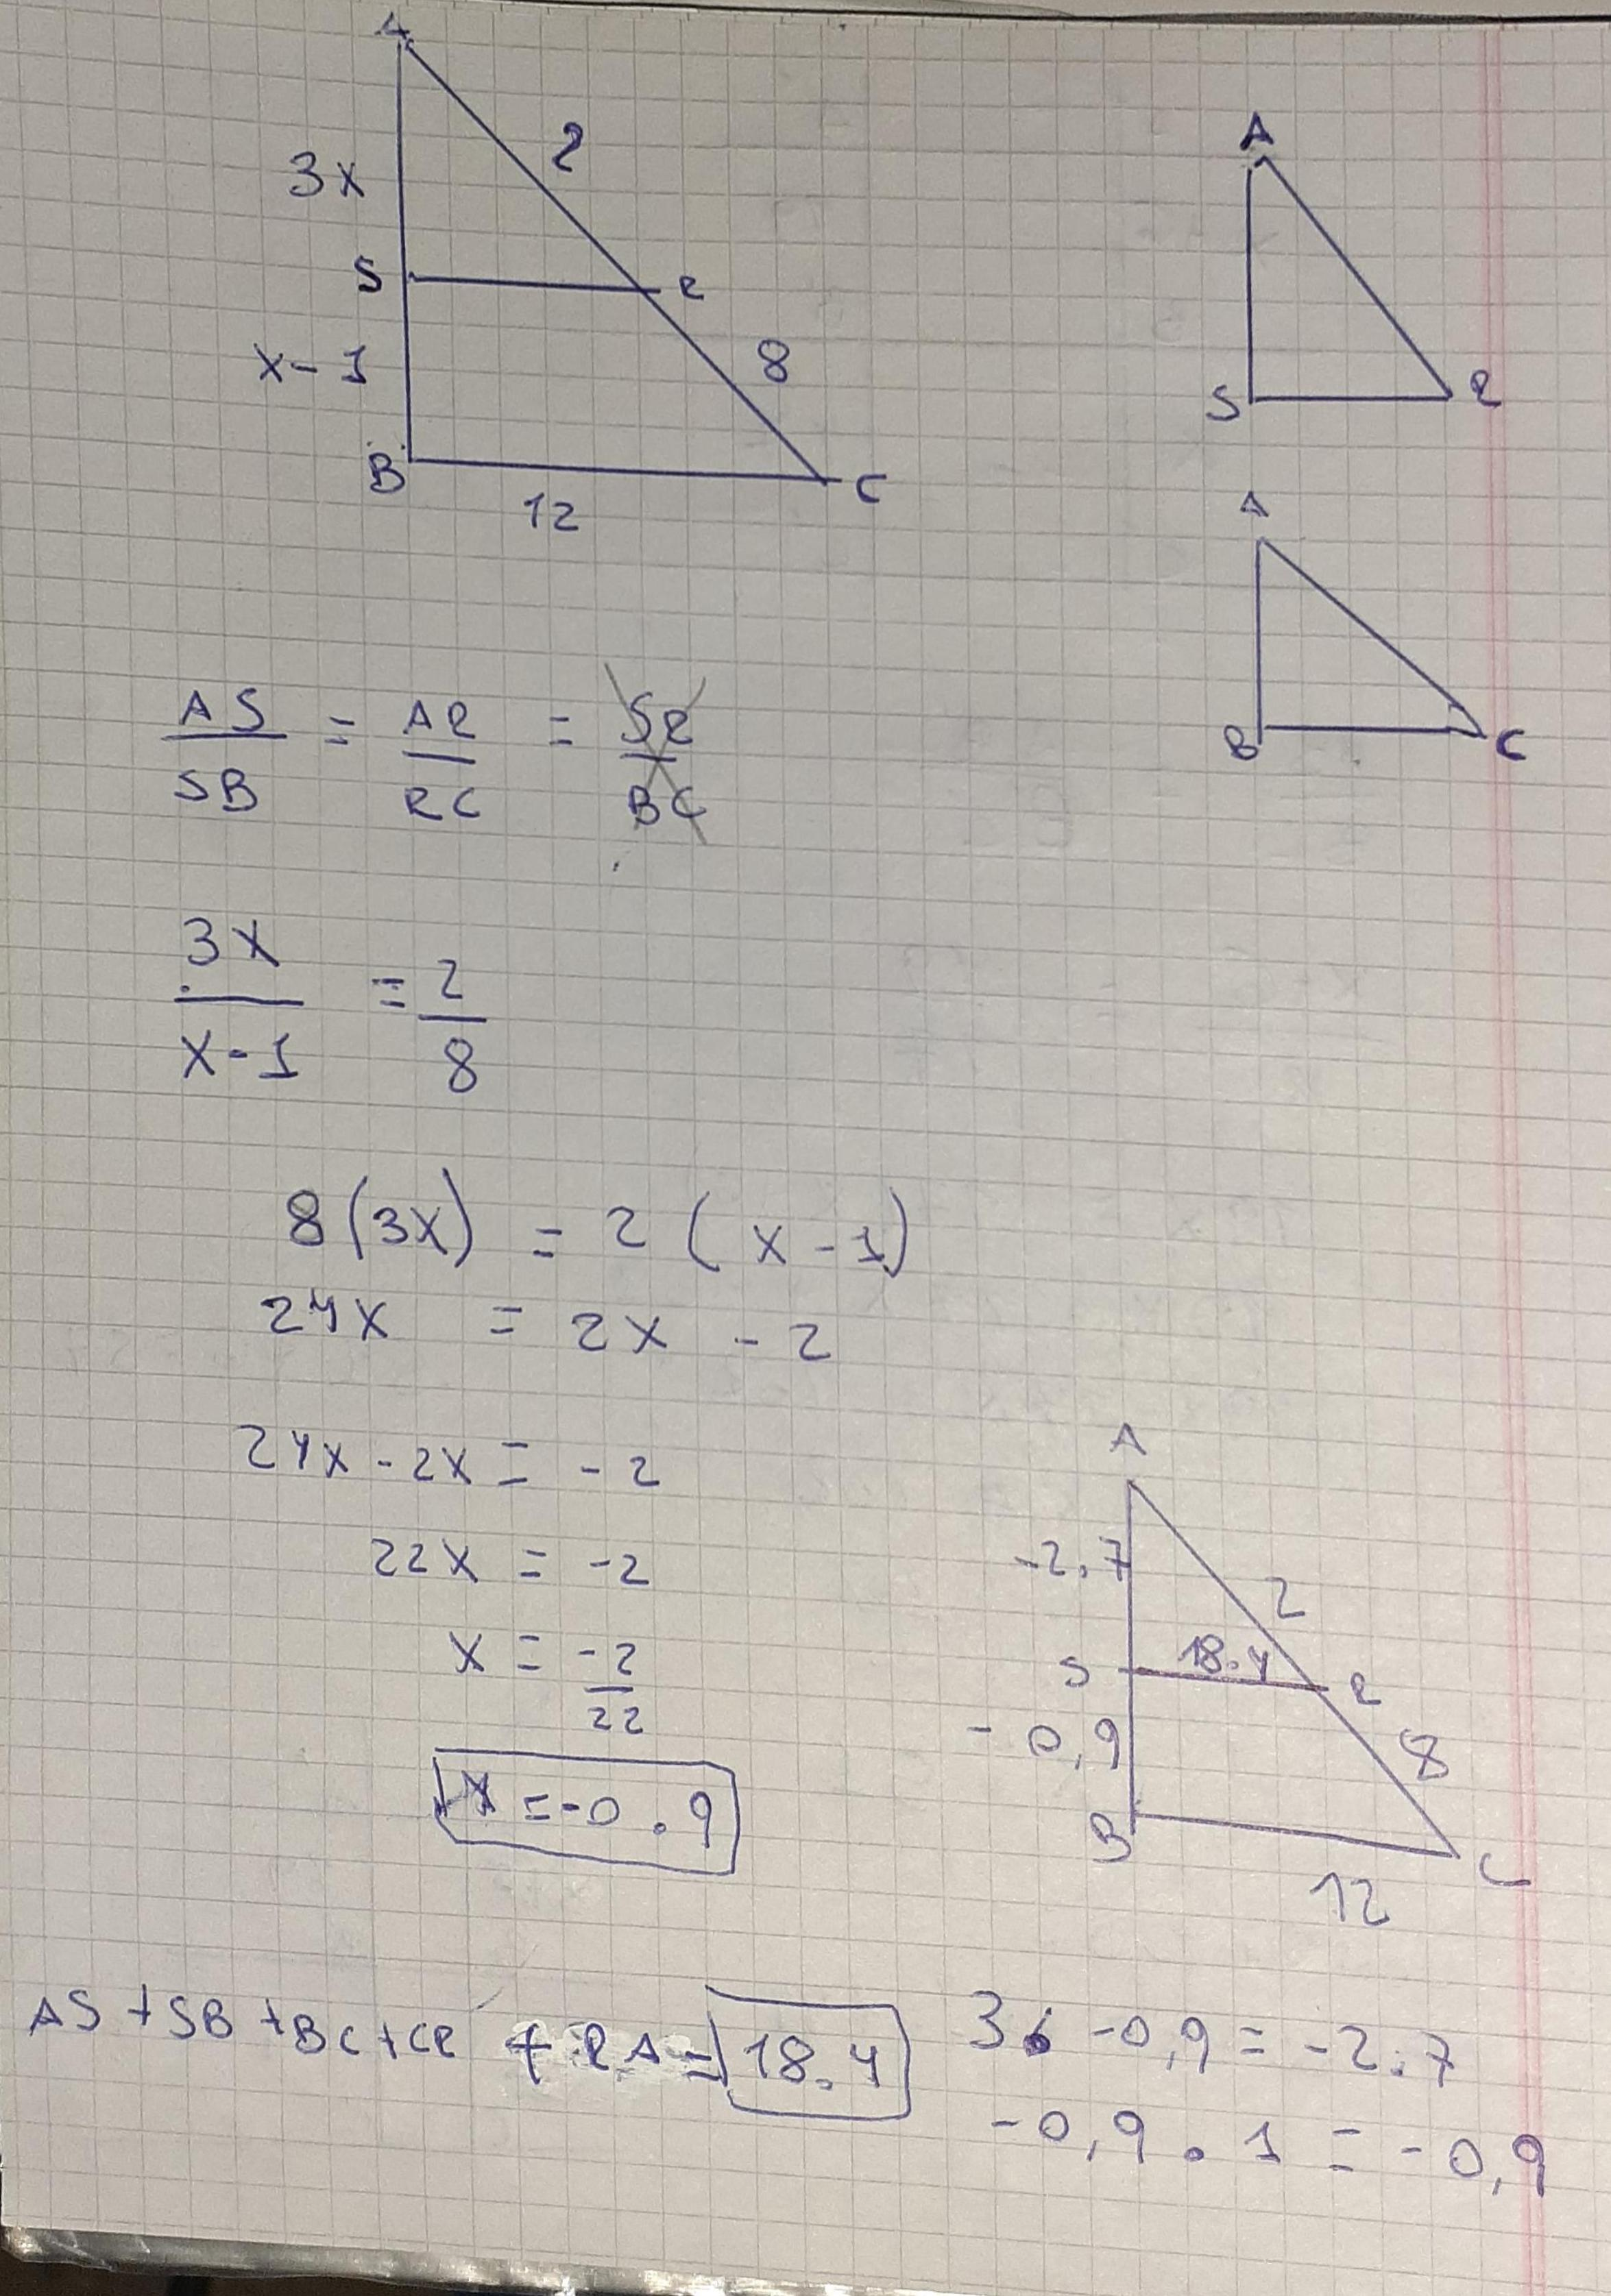 A
3x
2
S
R
x-1
8
B
12
C
A
S
R
A
B
C
AS/SB = AR/RC = SR/BC
3x/x-1 = 2/8
8(3x) = 2(x-1)
24x = 2x - 2
24x - 2x = -2
22x = -2
x = -2/22
x = -0.9
A
-2.7
2
S
18.4
R
-0,9
8
B
C
12
AS + SB + BC + CR + RA = 18.4
3 · -0,9 = -2.7
-0,9 · 1 = -0,9